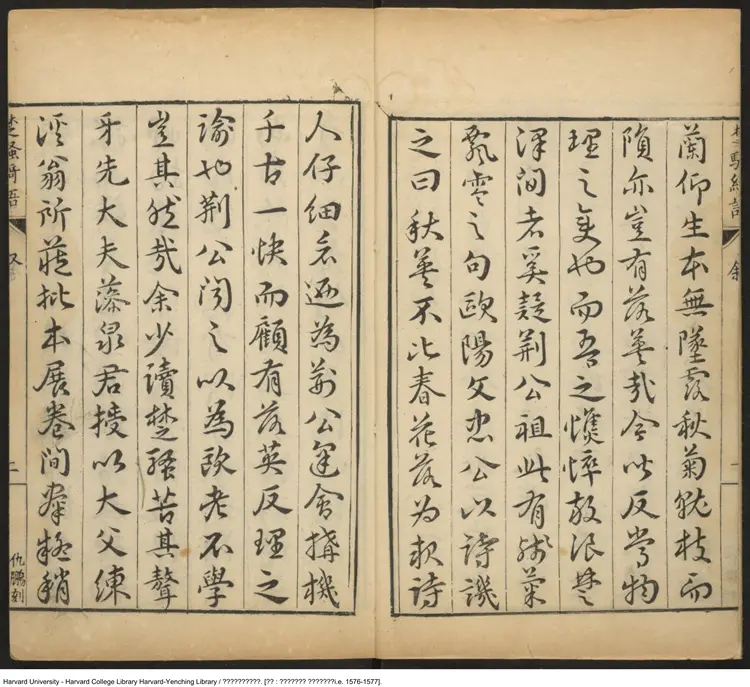 楚騷綺語
蘭仰生本無墜露秋菊就枝而
隕亦豈有落英哉令以反常物
理之變也而吾之憔悴放浪楚
澤間者奚疑荊公祖此有殘菊
飄零之句歐陽文忠公以詩譏
之曰秋英不比春花落為報詩
人仔細看為荊公會搆機
千古一快而顧有落英反理之
諭也荊公聞之以為歐老不學
豈其然哉余少讀楚騷苦其聱
牙先大夫藻泉君授以大父練
溪翁所藏批本展卷間稍
楚騷綺語
二
仇鵬刻
Harvard University - Harvard College Library Harvard-Yenching Library / ??????????. [?? : ??????? ???????i.e. 1576-1577].